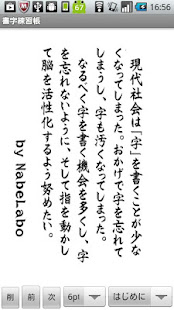 67
16:56
書字練習帳
現代社会は「字」を書くことが少な
くなってしまった。おかげで字を忘れて
しまうし、字も汚くなってしまった。
なるべく字を書く機会を多くし、字
を忘れないように、そして指を動かし
て脳を活性化するよう努めたい。
by NabeLabo
削
前
次
6pt
はじめに